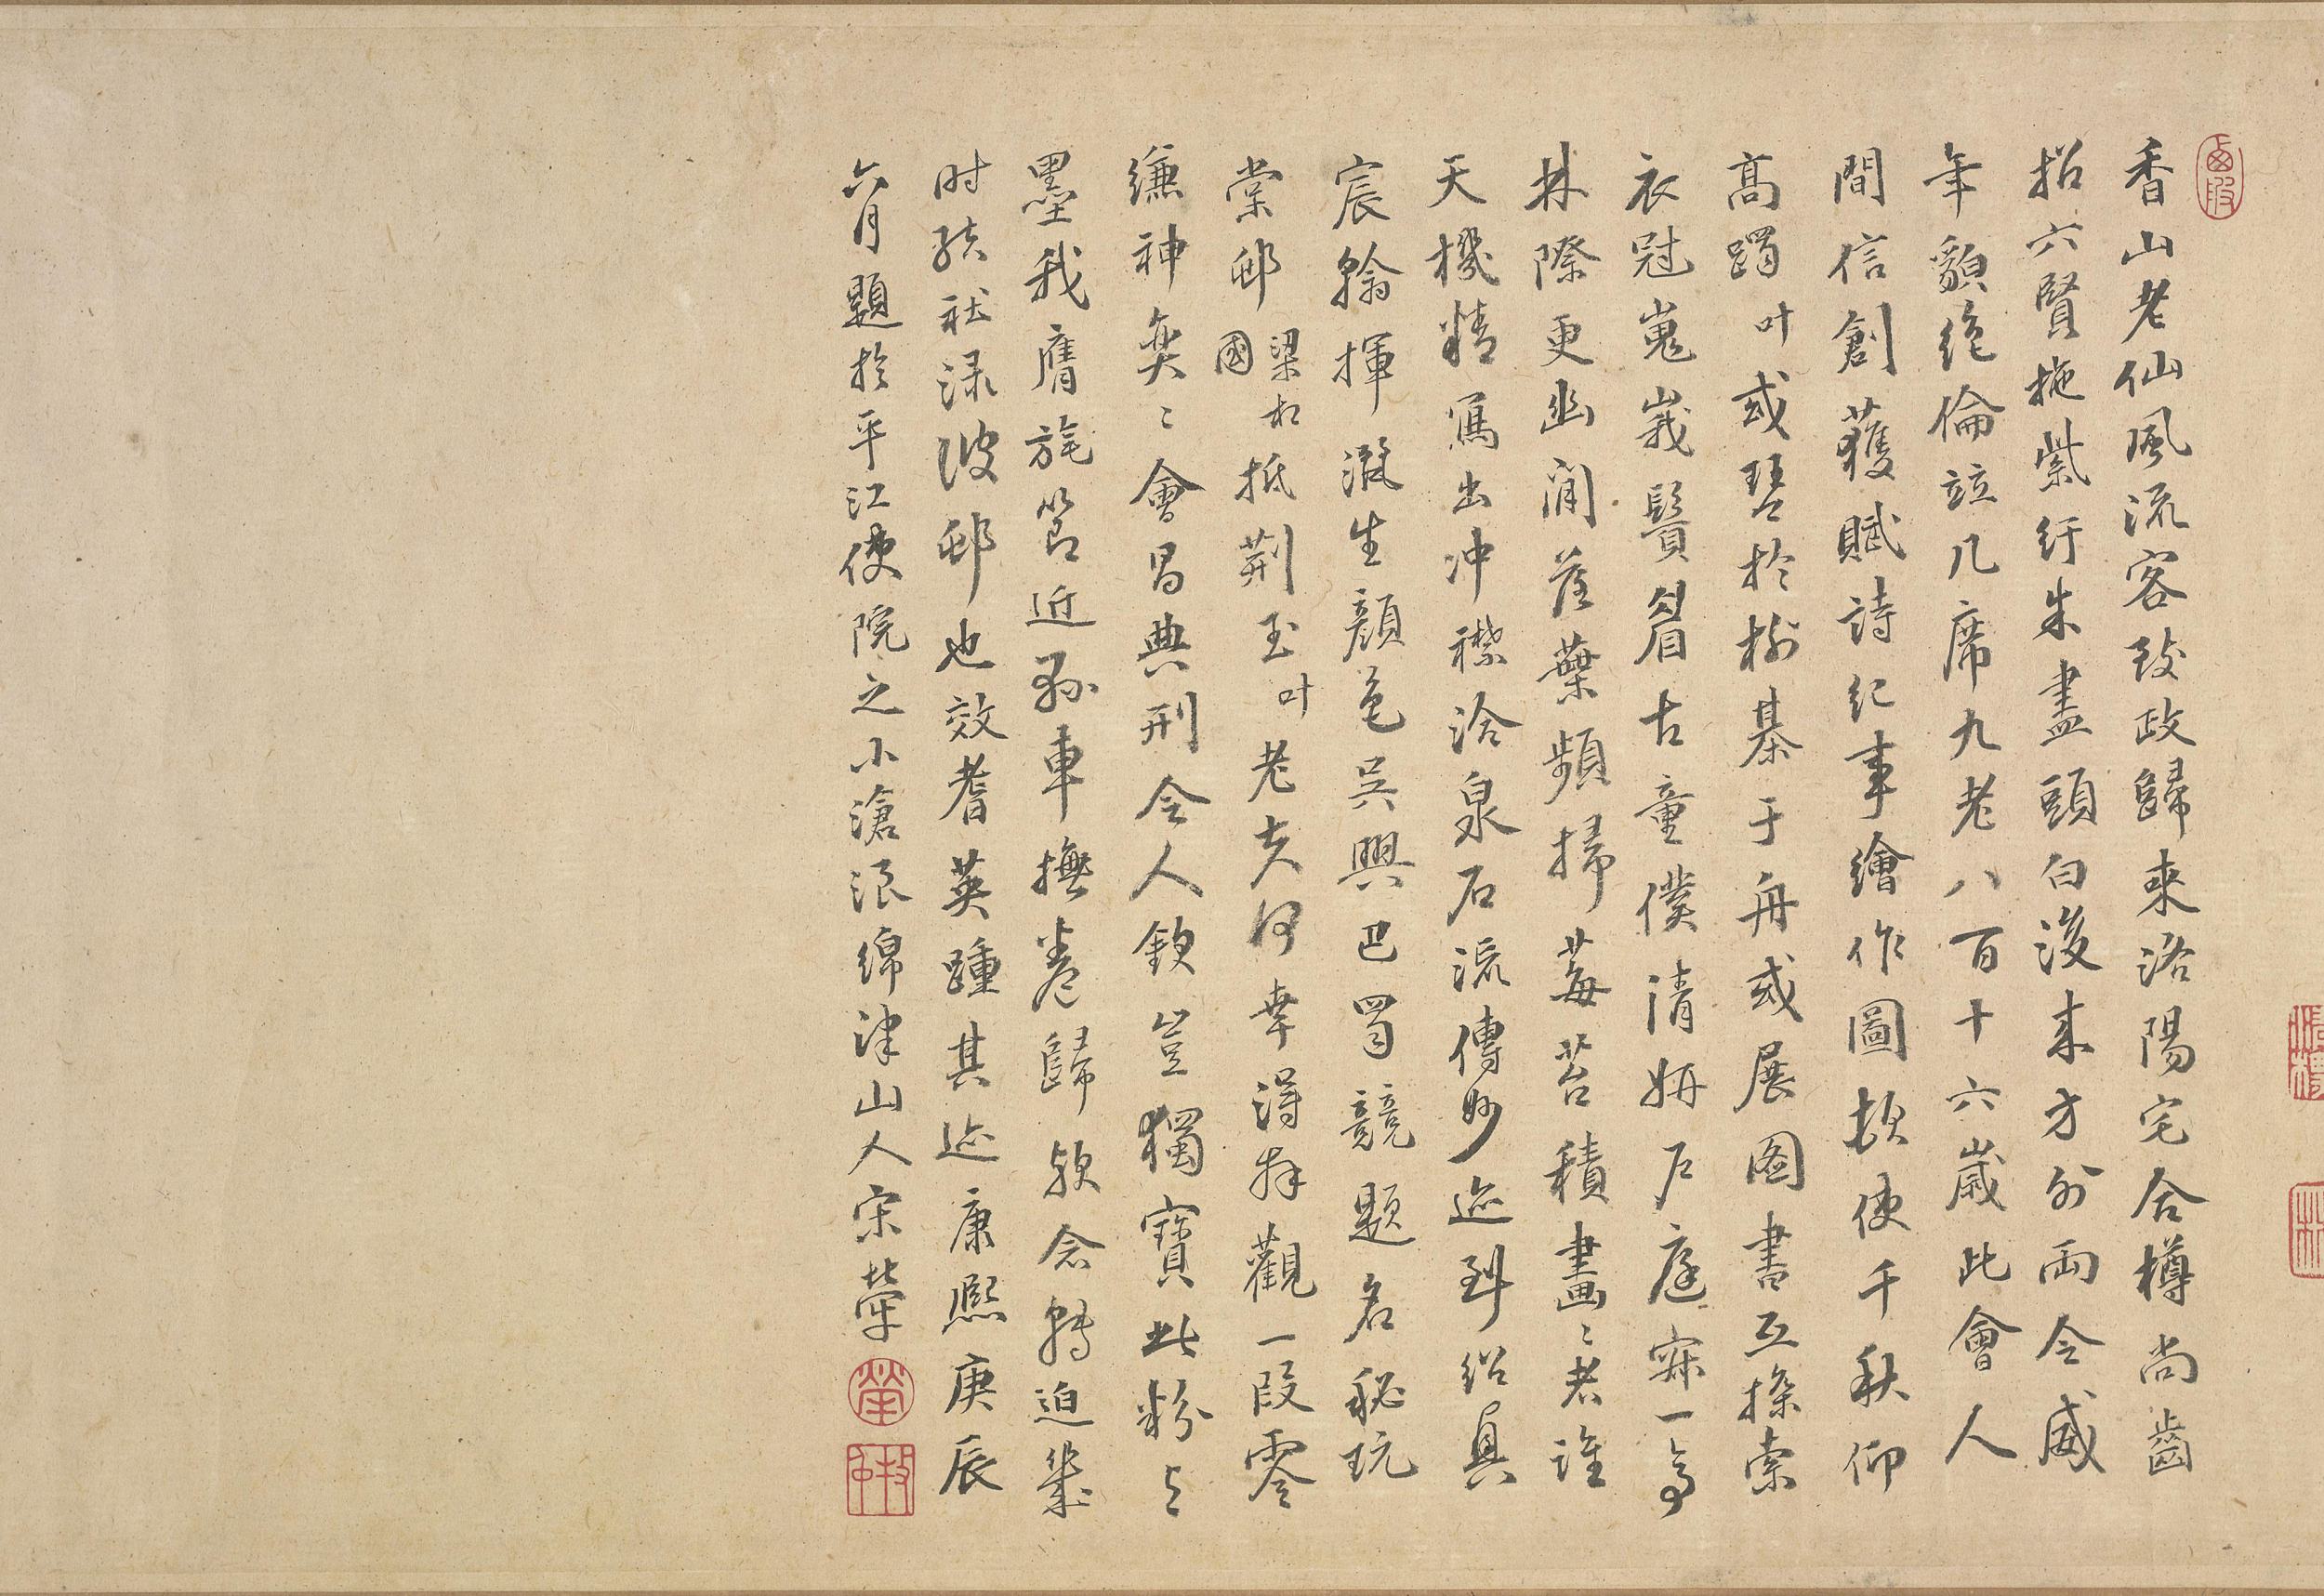 香山老仙風流客致政歸來洛陽宅合樽尚齒
招六賢拖紫紆朱盡頭白後來方外兩令威
年貌絶倫竝几席九老八百十六歲此會人
間信創獲賦詩紀事繪作圖故使千秋仰
高躅叶或琴於樹棊于舟或展图書互探索
衣冠嵬峩鬢眉古童僕清妍戶庭寂一亭
林際更幽閒落葉頻掃莓苔積畫〻者誰
天機精寫出冲襟洽泉石流傳妙迹到紹興
宸翰揮灑生顔色吳興巴蜀競題名秘玩
棠邨梁相國抵荆玉叶老夫何幸得拜觀一段零
縑神奕〻會昌典刑令人欽豈獨寶此粉與
墨我膺旄節近懸車撫卷歸欤念轉迫幾
时
邨也效耆英踵其迹康熙庚辰
六月題於平江使院之小滄浪綿津山人宋犖